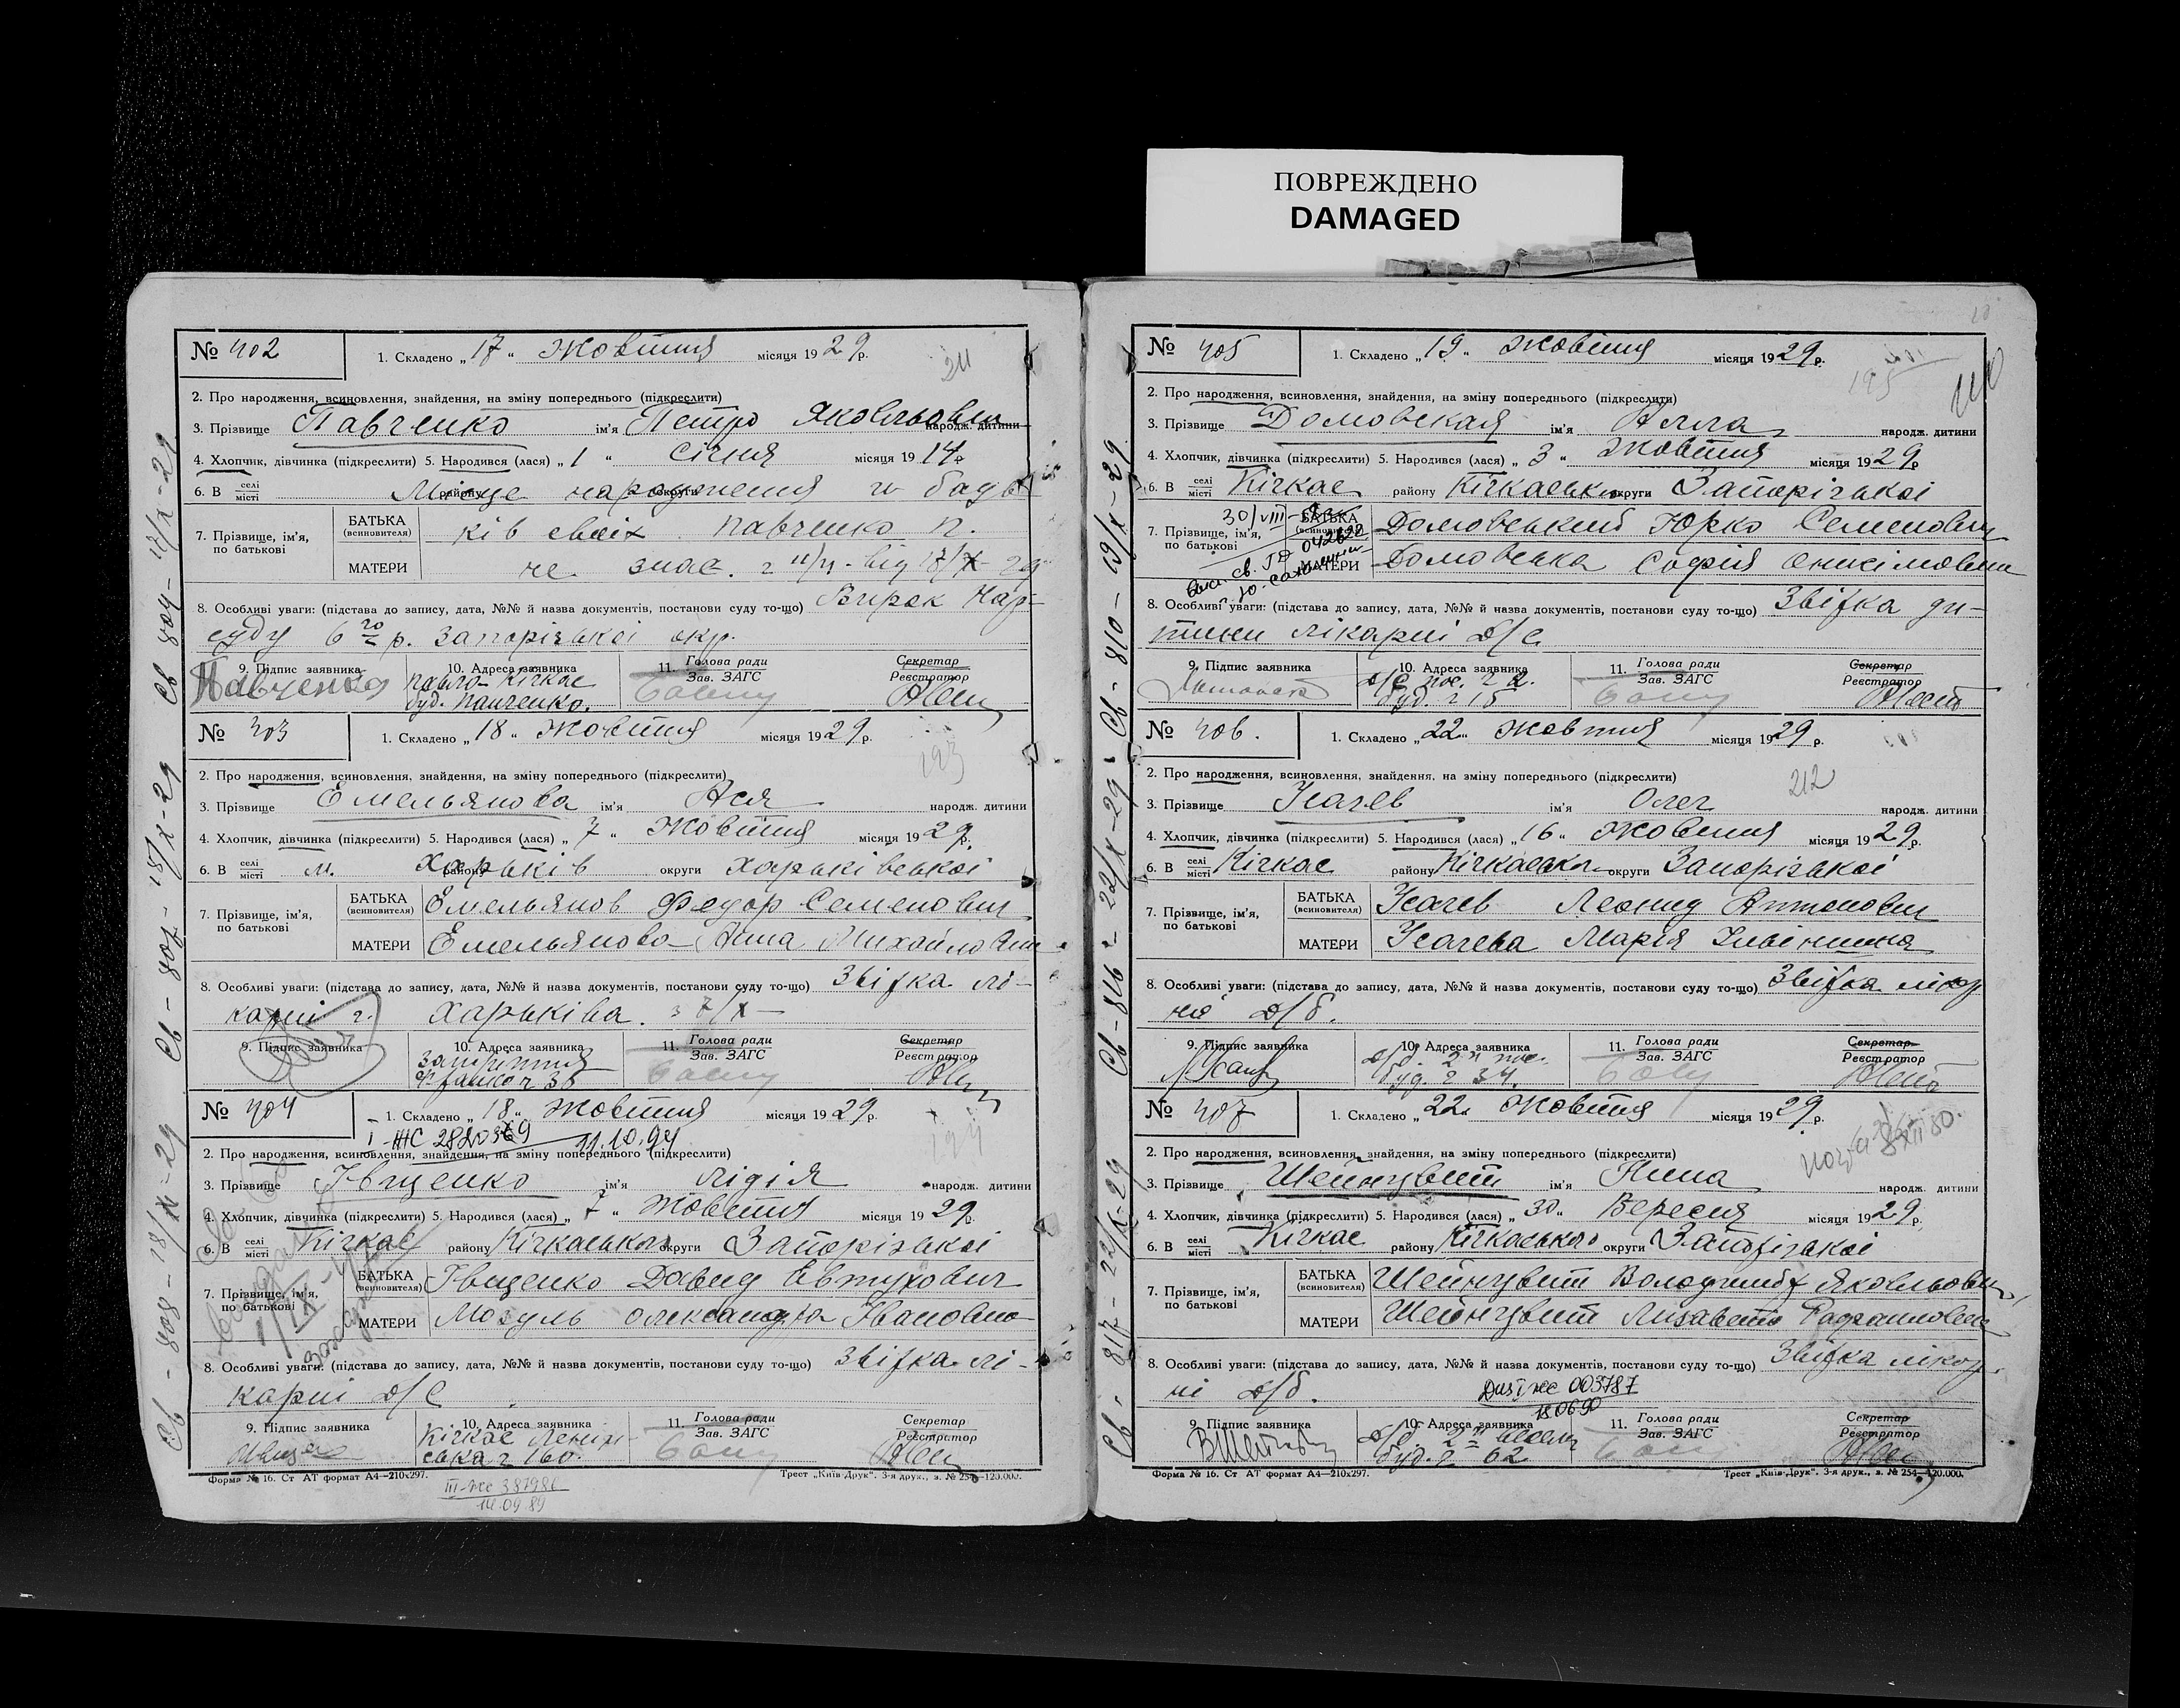 ПОВРЕЖДЕНО
DAMAGED
№ 402
1. Складено „ 17 “ Жовтня місяця 19 29 р.
211
2. Про народження, всиновлення, знайдення, на зміну попереднього (підкреслити)
3. Прізвище Павченко ім'я Петро Яковльович народж. дитини
4. Хлопчик, дівчинка (підкреслити) 5. Народився (лася) „ 1 “ Січня місяця 19 14 р.
6. В селі місті району округи Місце народження й батьків своїх
7. Прізвище, ім'я, по батькові
БАТЬКА (всиновителя) Павченко П.
МАТЕРИ не знає.
8. Особливі уваги: (підстава до запису, дата, №№ й назва документів, постанови суду то-що) Вирок Нар-
суду 6го р. Запорізької окр.
9. Підпис заявника Павченко
10. Адреса заявника Павло-Кічкас
буд. Панченко.
11. Голова ради Зав. ЗАГС
Секретар Реєстратор
№ 403
1. Складено „ 18 “ Жовтня місяця 19 29 р.
193
2. Про народження, всиновлення, знайдення, на зміну попереднього (підкреслити)
3. Прізвище Емельянова ім'я Ася народж. дитини
4. Хлопчик, дівчинка (підкреслити) 5. Народився (лася) „ 7 “ Жовтня місяця 19 29 р.
6. В селі місті м. Харьків району округи Харьківської
7. Прізвище, ім'я, по батькові
БАТЬКА (всиновителя) Емельянов Федор Семенович
МАТЕРИ Емельянова Анна Михайловна
8. Особливі уваги: (підстава до запису, дата, №№ й назва документів, постанови суду то-що) Звістка лі-
карні г. Харьківа. з 7/X
9. Підпис заявника
10. Адреса заявника
11. Голова ради Зав. ЗАГС
Секретар Реєстратор
№ 404
1. Складено „ 18 “ Жовтня місяця 19 29 р.
11.10.94
194
2. Про народження, всиновлення, знайдення, на зміну попереднього (підкреслити)
3. Прізвище Івщенко ім'я Лідія народж. дитини
4. Хлопчик, дівчинка (підкреслити) 5. Народився (лася) „ 7 “ Жовтня місяця 19 29 р.
6. В селі місті Кічкас району Кічкаського округи Запорізької
7. Прізвище, ім'я, по батькові
БАТЬКА (всиновителя) Івщенко Давид Евтухович
МАТЕРИ Мозуль Олександра Івановна
8. Особливі уваги: (підстава до запису, дата, №№ й назва документів, постанови суду то-що) Звістка лі-
карні Д/С
9. Підпис заявника
10. Адреса заявника Кічкас Ленін-
ська ч 160.
11. Голова ради Зав. ЗАГС
Секретар Реєстратор
Форма № 16. Ст АТ формат А4—210х297.
Трест „Київ-Друк“. 3-я друк., з. № 254—120.000.
14.09.89
Св - 808 - 18/X - 29 Св - 807 - 18/X - 29 Св 804 - 17/X - 29
№ 405
1. Складено „ 19 “ Жовтня місяця 19 29 р.
195
2. Про народження, всиновлення, знайдення, на зміну попереднього (підкреслити)
3. Прізвище Домовская ім'я Алла народж. дитини
4. Хлопчик, дівчинка (підкреслити) 5. Народився (лася) „ 3 “ Жовтня місяця 19 29 р.
6. В селі місті Кічкас району Кічкаського округи Запорізької
7. Прізвище, ім'я, по батькові
БАТЬКА (всиновителя) Домовський Юрко Семенович
МАТЕРИ Домовська Софія Онисімовна
8. Особливі уваги: (підстава до запису, дата, №№ й назва документів, постанови суду то-що) Звістка ди-
тини лікарні Д/С
9. Підпис заявника
10. Адреса заявника Д/С пос. ч 2.
буд. ч 15
11. Голова ради Зав. ЗАГС
Секретар Реєстратор
№ 406.
1. Складено „ 22 “ Жовтня місяця 19 29 р.
212
2. Про народження, всиновлення, знайдення, на зміну попереднього (підкреслити)
3. Прізвище Усачев ім'я Олег народж. дитини
4. Хлопчик, дівчинка (підкреслити) 5. Народився (лася) „ 16 “ Жовтня місяця 19 29 р.
6. В селі місті Кічкас району Кічкаського округи Запорізької
7. Прізвище, ім'я, по батькові
БАТЬКА (всиновителя) Усачев Леонид Антонович
МАТЕРИ Усачева Марія
8. Особливі уваги: (підстава до запису, дата, №№ й назва документів, постанови суду то-що) Звістка лікар
ні Д/б.
9. Підпис заявника
10. Адреса заявника
буд. ч 34.
11. Голова ради Зав. ЗАГС
Секретар Реєстратор
№ 407
1. Складено „ 22 “ Жовтня місяця 19 29 р.
2. Про народження, всиновлення, знайдення, на зміну попереднього (підкреслити)
3. Прізвище Шейнцвит ім'я Нина народж. дитини
4. Хлопчик, дівчинка (підкреслити) 5. Народився (лася) „ 30 “ Вересня місяця 19 29 р.
6. В селі місті Кічкас району Кічкаського округи Запорізької
7. Прізвище, ім'я, по батькові
БАТЬКА (всиновителя) Шейнцвит Володимир Яковльович
МАТЕРИ Шейнцвит Лизавета
8. Особливі уваги: (підстава до запису, дата, №№ й назва документів, постанови суду то-що) Звістка лікар
ні Д/б.
003787
180690
9. Підпис заявника
10. Адреса заявника
буд. ч 62
11. Голова ради Зав. ЗАГС
Секретар Реєстратор
Форма № 16. Ст АТ формат А4—210х297.
Трест „Київ-Друк“. 3-я друк., з. № 254—120.000.
Св - 817 - 22/X - 29 Св - 816 - 22/X - 29 Св - 810 - 19/X - 29